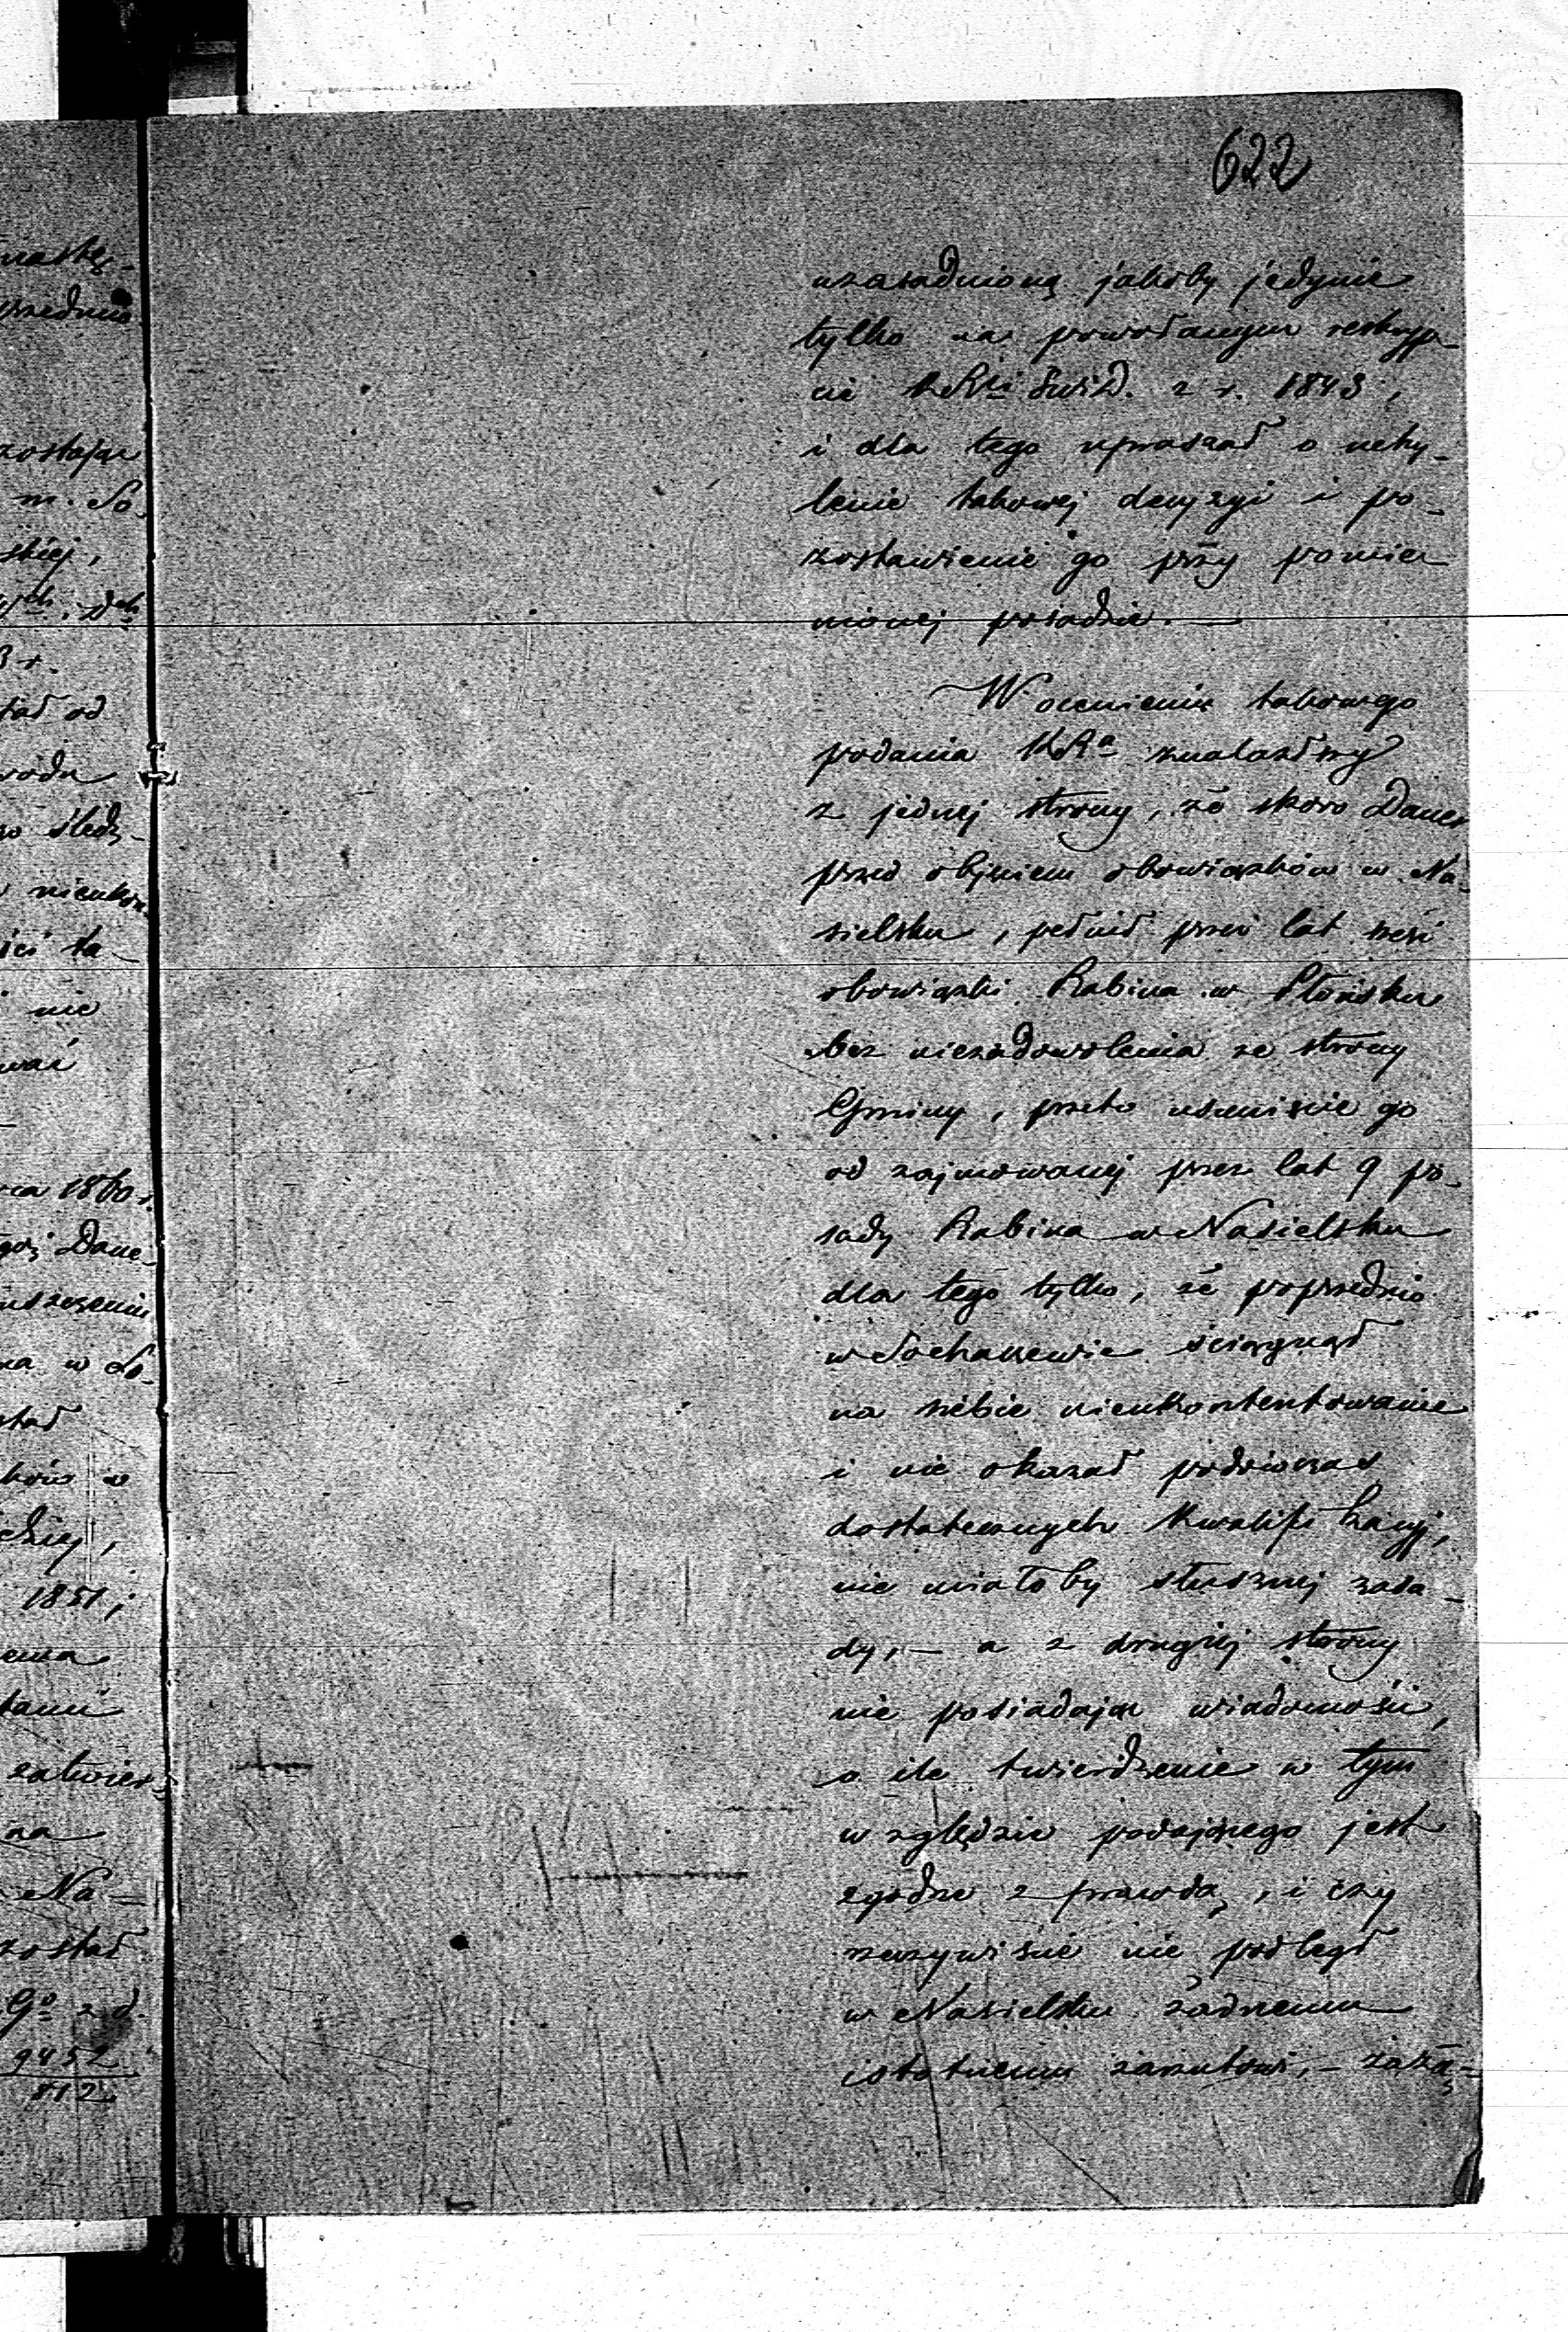 622
uzasadnioną jakoby jedynie
tylko na powołanym reskryp-
cie KRki SWiD. z r. 1843,
i dla tego upraszał o uchy-
lenie takowej decyzyi i po-
zostawienie go przy pomie-
nionej posadzie. —
W ocenieniu takowego
podania KRa znalazłszy
z jednej strony, że skoro Daner
przed objęciem obowiązków w Na-
sielsku, pełnił przez lat sześć
obowiązki Rabina w Płońsku
bez niezadowolenia ze strony
Gminy, przeto usunięcie go
od zajmowanej przez lat 9 po-
sady Rabina w Nasielsku
dla tego tylko, że poprzednio
w Sochaczewie ściągnął
na siebie nieukontentowanie
i nie okazał podówczas
dostatecznych kwalifikacyj,
nie miałoby słusznej zasa-
dy, — a z drugiej strony
nie posiadając wiadomości,
o ile twierdzenie w tym
względzie podającego jest
zgodne z prawdą, i czy
rzeczywiście nie podlegał
w Nasielsku żadnemu
istotnemu zarzutowi, — zażą-
nastę-
przednio
zostając
m. So-
skiej,
3 r.
tał od
wodu
śledz-
nieukon-
ści ta-
nie
wać
ca 1860 r.
Dane-
na w So-
stał
ków w
1851;
zatwier-
na
Na-
został
Go z d.
9452
812